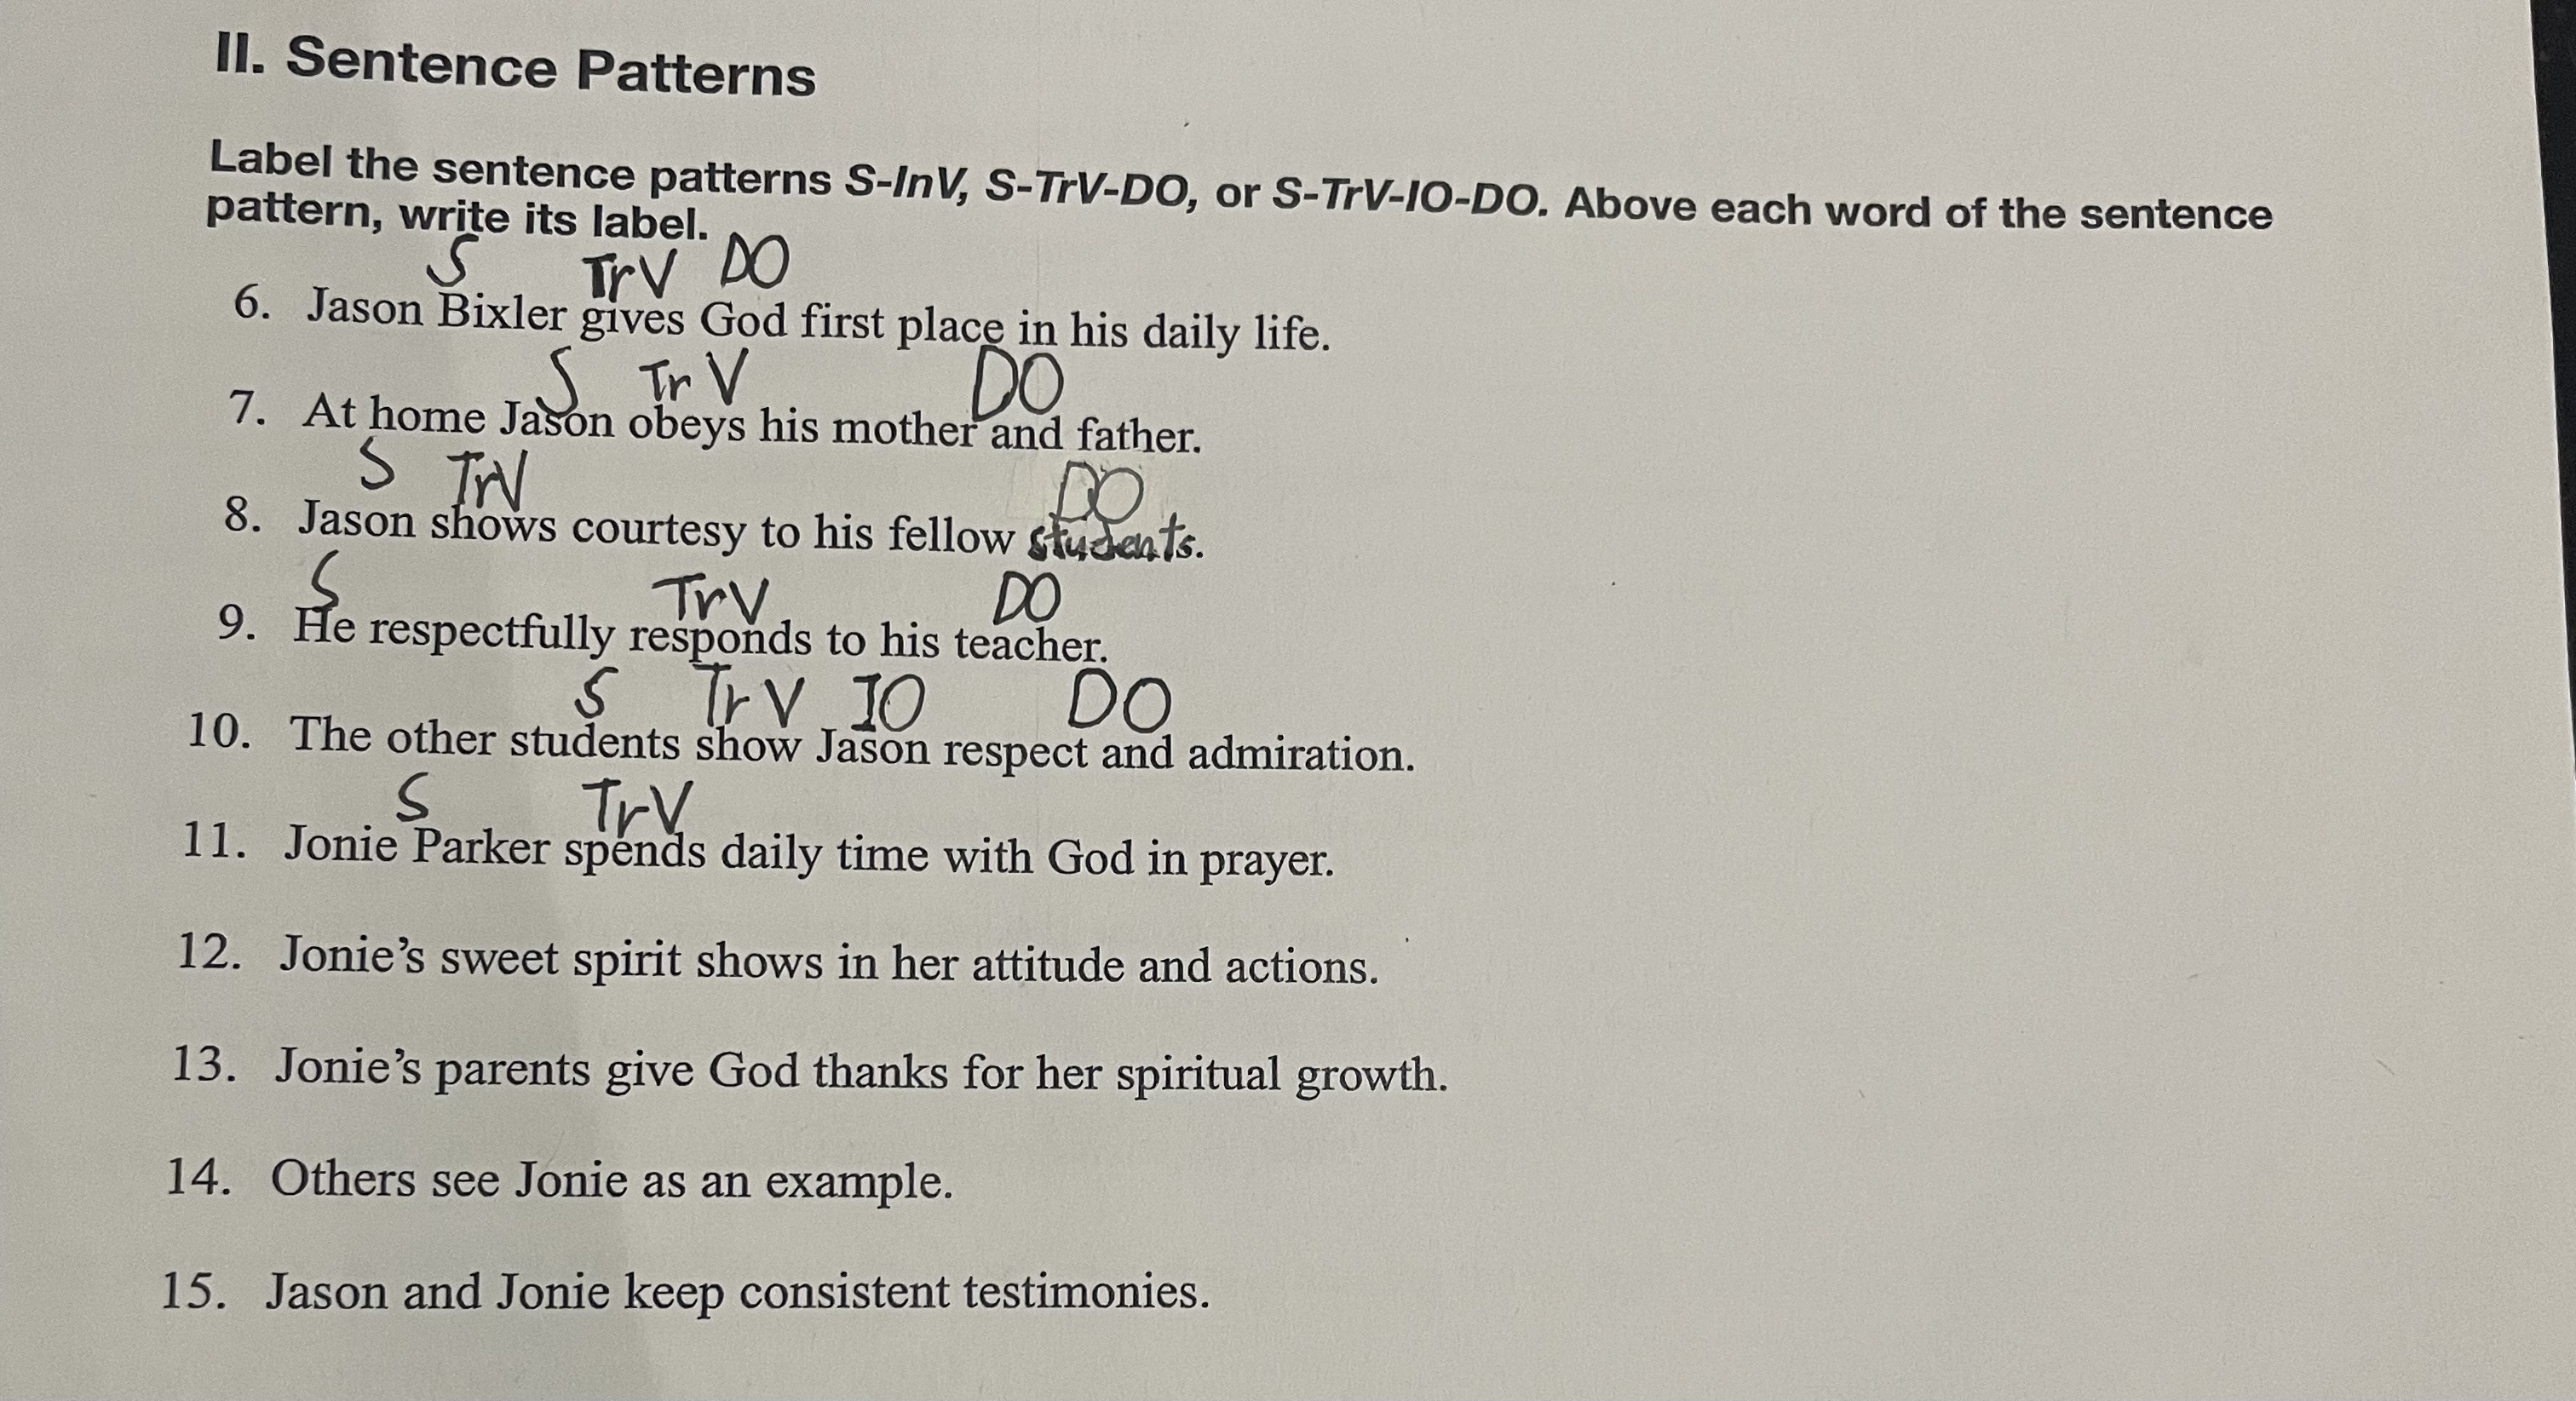 II. Sentence Patterns
Label the sentence patterns S-InV, S-TrV-DO, or S-TrV-IO-DO. Above each word of the sentence
pattern, write its label.
S TrV DO
6. Jason Bixler gives God first place in his daily life.
S TrV DO
7. At home Jason obeys his mother and father.
S TrV DO
8. Jason shows courtesy to his fellow students.
S TrV DO
9. He respectfully responds to his teacher.
S TrV IO DO
10. The other students show Jason respect and admiration.
S TrV
11. Jonie Parker spends daily time with God in prayer.
12. Jonie's sweet spirit shows in her attitude and actions.
13. Jonie's parents give God thanks for her spiritual growth.
14. Others see Jonie as an example.
15. Jason and Jonie keep consistent testimonies.